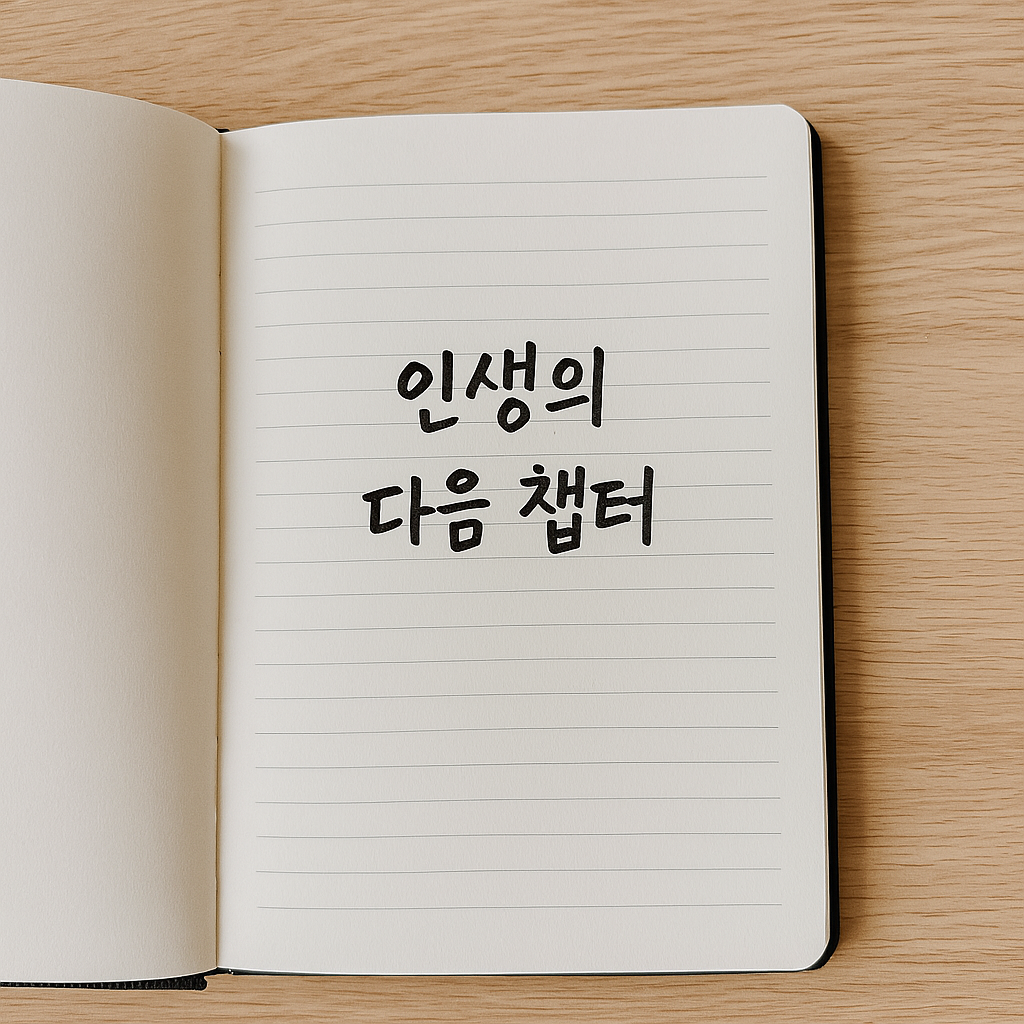 인생의
다음 챕터